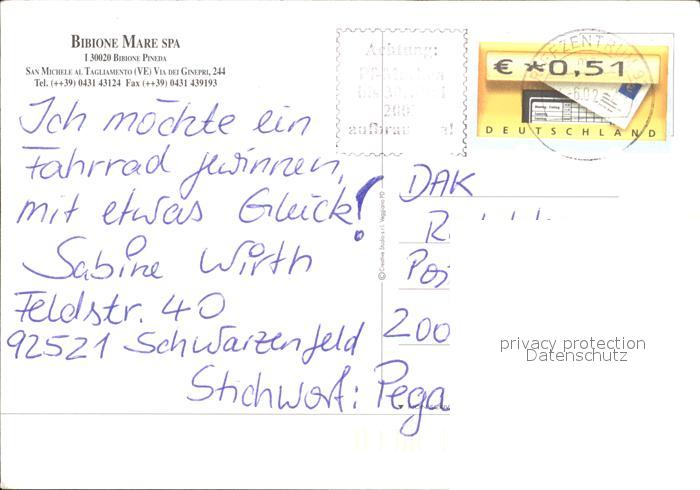 BIBIONE MARE SPA
I 30020 BIBIONE PINEDA
SAN MICHELE AL TAGLIAMENTO (VE) VIA DEI GINEPRI, 244
Tel. (++39) 0431 43124 Fax (++39) 0431 439193
Achtung:
€ *0,51
DEUTSCHLAND
Ich möchte ein
Fahrrad gewinnen,
mit etwas Glück!
Sabine Wirth
Feldstr. 40
92521 Schwarzenfeld
Stichwort: Pega
DAK
R
Pos
200
privacy protection
Datenschutz